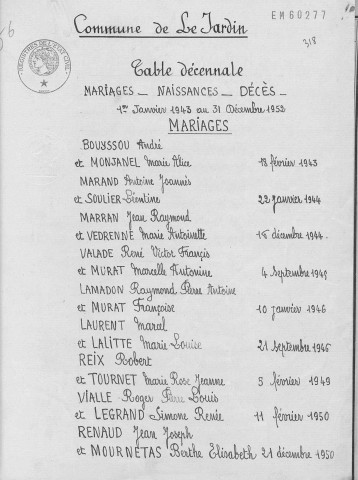 EM60277
318
Commune de Le Jardin
Table décennale
MARIAGES _ NAISSANCES _ DÉCÈS _
1er Janvier 1943 au 31 Décembre 1952
MARIAGES
BOUYSSOU André
et MONJANEL Marie Alice 18 février 1943
MARAND Antoine Joannès
et SOULIER Léontine 22 janvier 1944
MARRAN Jean Raymond
et VEDRENNE Marie Antoinette 16 décembre 1944
VALADE René Victor François
et MURAT Marcelle Antonine 4 septembre 1945
LAMADON Raymond Pierre Antoine
et MURAT Françoise 10 janvier 1946
LAURENT Marcel
et LALITTE Marie Louise 21 septembre 1946
REIX Robert
et TOURNET Marie Rose Jeanne 5 février 1949
VIALLE Roger Pierre Louis
et LEGRAND Simone Renée 11 février 1950
RENAUD Jean Joseph
et MOURNETAS Berthe Elisabeth 21 décembre 1950